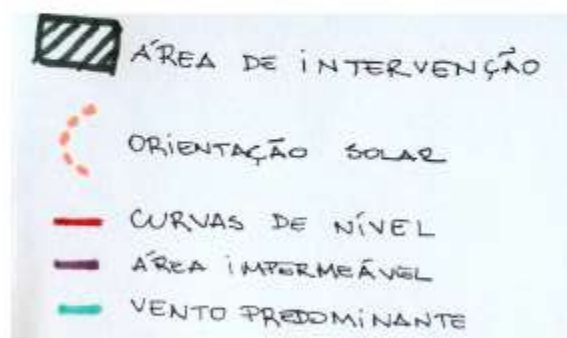 ÁREA DE INTERVENÇÃO
ORIENTAÇÃO SOLAR
CURVAS DE NÍVEL
ÁREA IMPERMEÁVEL
VENTO PREDOMINANTE